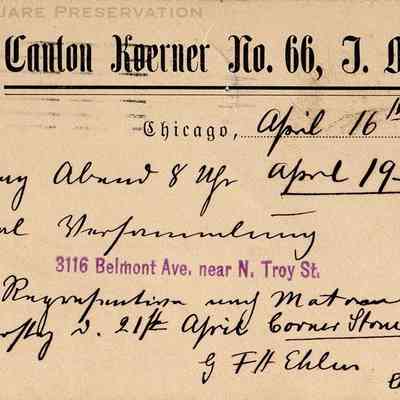 UARE PRESERVATION
Canton Koerner No. 66, I.
Chicago, April 16th
Abend 8 Uhr April 19
Versammlung
3116 Belmont Ave. near N. Troy St.
und
21st April Corner Stone
G F H Ehlers